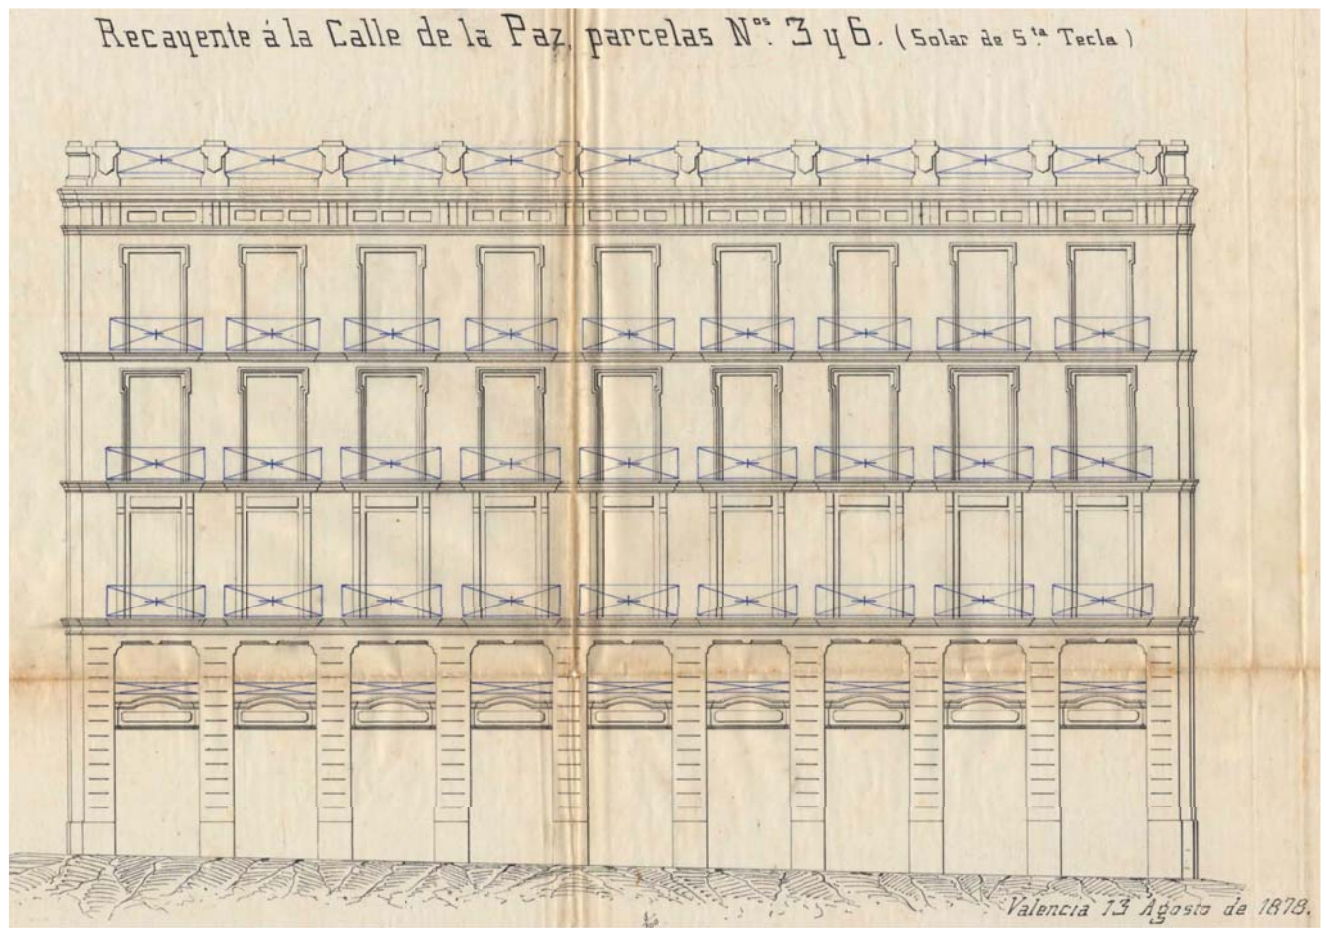 Recayente á la Calle de la Paz, parcelas Nos. 3 y 6. (Solar de Sta. Tecla)
Valencia 13 Agosto de 1878.